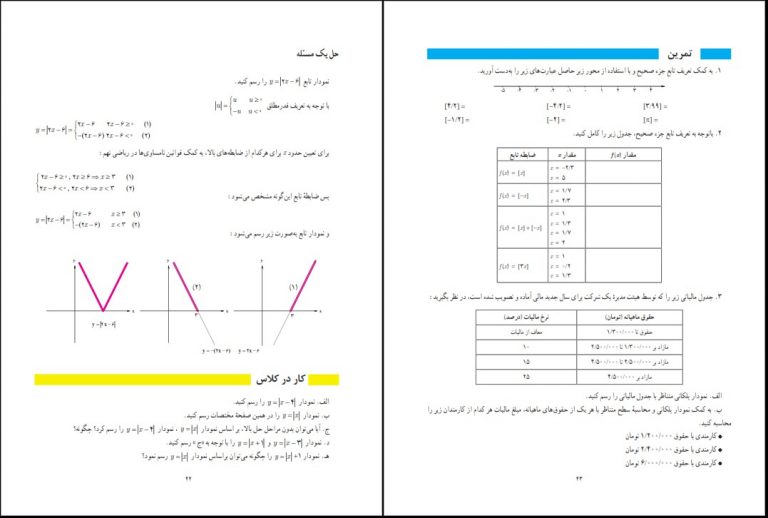 حل یک مسئله
نمودار تابع y=|۲x−۶| را رسم کنید.
با توجه به تعریف قدرمطلق |u|={u u≥۰ , −u u<۰
y=|۲x−۶|={۲x−۶ ۲x−۶≥۰ (۱)
−(۲x−۶) ۲x−۶<۰ (۲)
برای تعیین حدود x برای هرکدام از ضابطه‌های بالا، به کمک قوانین نامساوی‌ها در ریاضی نهم :
{۲x−۶≥۰ , ۲x≥۶ ⇒ x≥۳ (۱)
۲x−۶<۰ , ۲x<۶ ⇒ x<۳ (۲)
پس ضابطهٔ تابع این‌گونه مشخص می‌شود :
y=|۲x−۶|={۲x−۶ x≥۳ (۱)
−(۲x−۶) x<۳ (۲)
و نمودار تابع به‌صورت زیر رسم می‌شود :
y y y
(۲) (۱)
x x x
۳ ۳
y=|۲x−۶| y=−(۲x−۶) y=۲x−۶
کار در کلاس
الف. نمودار y=|x−۴| را رسم کنید.
ب. نمودار y=|x| را در همین صفحهٔ مختصات رسم کنید.
ج. آیا می‌توان بدون مراحل حل بالا، بر اساس نمودار y=|x| ، نمودار y=|x−۴| را رسم کرد؟ چگونه؟
د. نمودار y=|x−۳| و y=|x+۱| را با توجه به «ج» رسم کنید.
هـ. نمودار y=|x|+۱ را چگونه می‌توان براساس نمودار y=|x| رسم نمود؟
۴۲
تمرین
۱. به کمک تعریف تابع جزء صحیح و با استفاده از محور زیر حاصل عبارت‌های زیر را به‌دست آورید.
-۵ -۴ -۳ -۲ -۱ ۰ ۱ ۲ ۳ ۴
[۴/۲] = [−۴/۲] = [۳/۹۹] =
[−۱/۲] = [−۲] = [π] =
۲. باتوجه به تعریف تابع جزء صحیح، جدول زیر را کامل کنید.
ضابطه تابع مقدار x مقدار f(x)
f(x) = [x] x = −۲/۳
x = ۵
f(x) = [−x] x = ۱/۷
x = ۲/۳
f(x) = [x]+[−x] x = ۱
x = ۱/۳
x = ۱/۷
x = ۲
f(x) = [۳x] x = ۱
x = ۰/۲
x = ۱/۳
۳. جدول مالیاتی زیر را که توسط هیئت مدیرهٔ یک شرکت برای سال جدید مالی آماده و تصویب شده است، در نظر بگیرید :
حقوق ماهیانه (تومان) نرخ مالیات (درصد)
حقوق تا ۱/۳۰۰/۰۰۰ معاف از مالیات
مازاد بر ۱/۳۰۰/۰۰۰ تا ۲/۵۰۰/۰۰۰ ۱۰
مازاد بر ۲/۵۰۰/۰۰۰ تا ۴/۵۰۰/۰۰۰ ۱۵
مازاد بر ۴/۵۰۰/۰۰۰ ۲۵
الف. نمودار پلکانی متناظر با جدول مالیاتی را رسم کنید.
ب. به کمک نمودار پلکانی و محاسبهٔ سطح متناظر با هر یک از حقوق‌های ماهیانه، مبلغ مالیات هر کدام از کارمندان زیر را
محاسبه کنید.
● کارمندی با حقوق ۱/۲۰۰/۰۰۰ تومان
● کارمندی با حقوق ۲/۴۰۰/۰۰۰ تومان
● کارمندی با حقوق ۶/۰۰۰/۰۰۰ تومان
۴۳